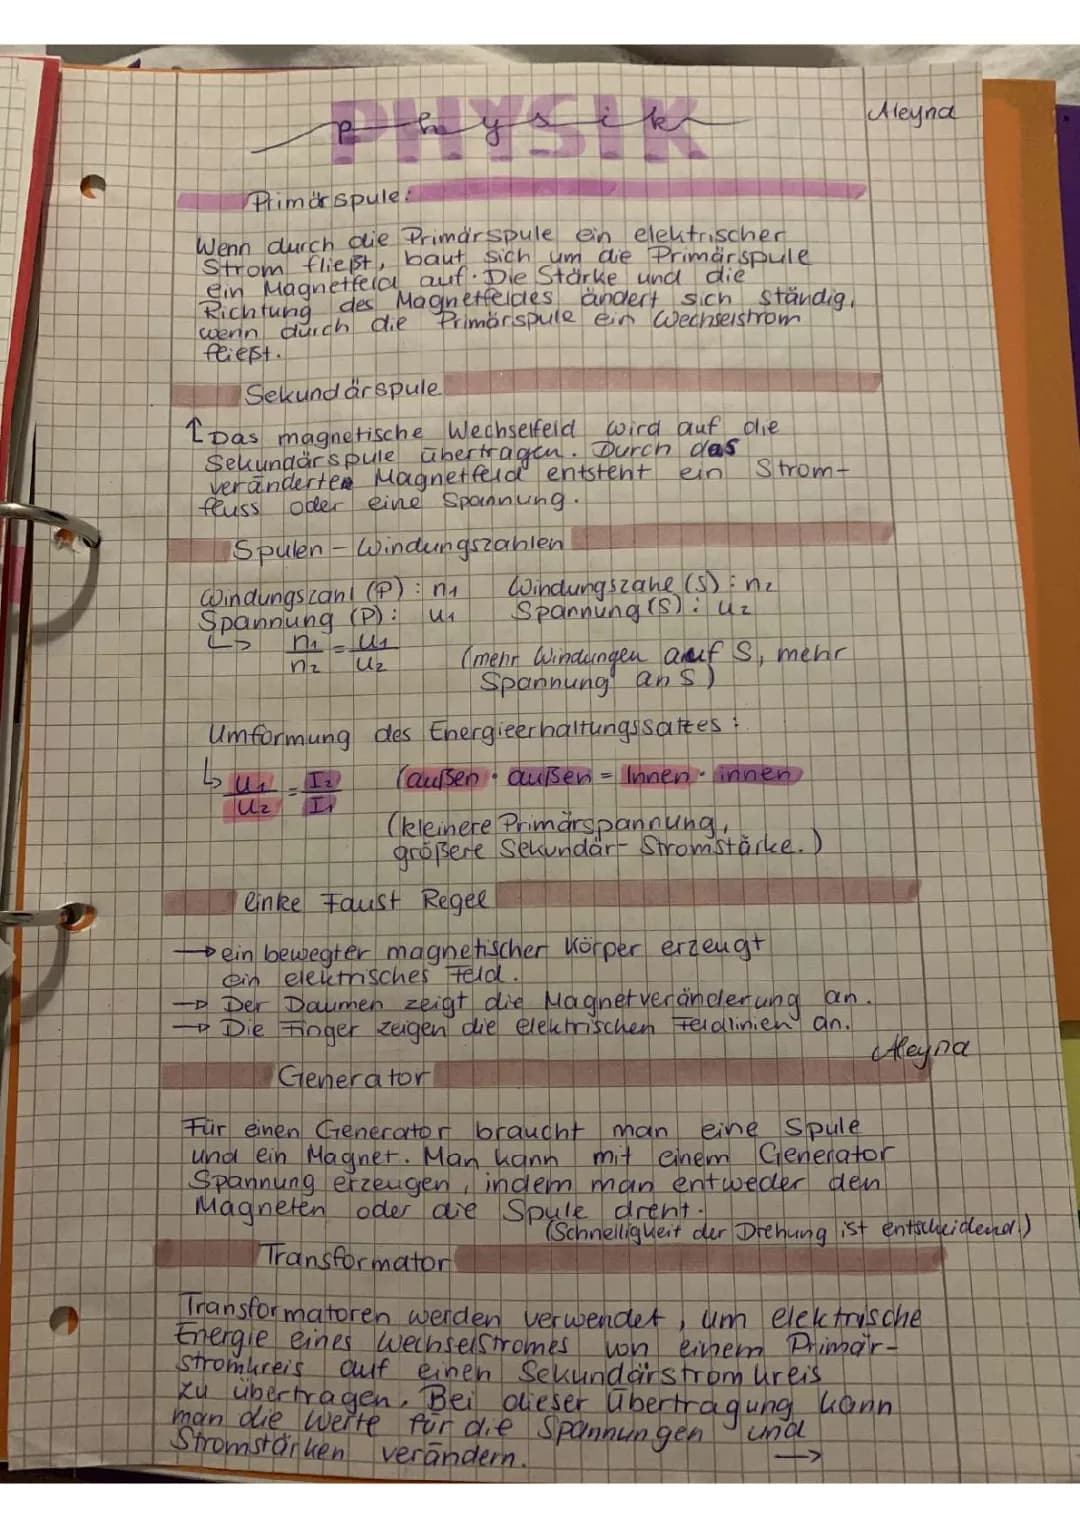 PHYSIK
Physik
Aleyna
Primärspule:
Wenn durch die Primärspule ein elektrischer
Strom fließt, baut sich um die Primärspule
ein Magnetfeld auf. Die Stärke und die
Richtung des Magnetfeldes ändert sich ständig,
wenn durch die Primärspule ein Wechselstrom
fließt.
Sekundärspule
↑ Das magnetische Wechselfeld wird auf die
Sekundärspule übertragen. Durch das
veränderte Magnetfeld entsteht ein Strom-
fluss oder eine Spannung.
Spulen - Windungszahlen
Windungszahl (P) : n₁ Windungszahl (S) : n₂
Spannung (P) : U₁ Spannung (S) : U₂
↳ n₁/n₂ = U₁/U₂ (mehr Windungen auf S, mehr
Spannung an S)
Umformung des Energieerhaltungssattes :
↳ U₁/U₂ = I₂/I₁ (außen · außen = Innen · innen
(kleinere Primärspannung,
größere Sekundär-Stromstärke.)
linke Faust Regel
→ ein bewegter magnetischer Körper erzeugt
ein elektrisches Feld.
→ Der Daumen zeigt die Magnetveränderung an.
→ Die Finger zeigen die elektrischen Feldlinien an.
Aleyna
Generator
Für einen Generator braucht man eine Spule
und ein Magnet. Man kann mit einem Generator
Spannung erzeugen, indem man entweder den
Magneten oder die Spule dreht.
(Schnelligkeit der Drehung ist entscheidend.)
Transformator
Transformatoren werden verwendet, um elektrische
Energie eines Wechselstromes von einem Primär-
stromkreis auf einen Sekundärstromkreis
zu übertragen. Bei dieser Übertragung kann
man die Werte für die Spannungen und
Stromstärken verändern. →